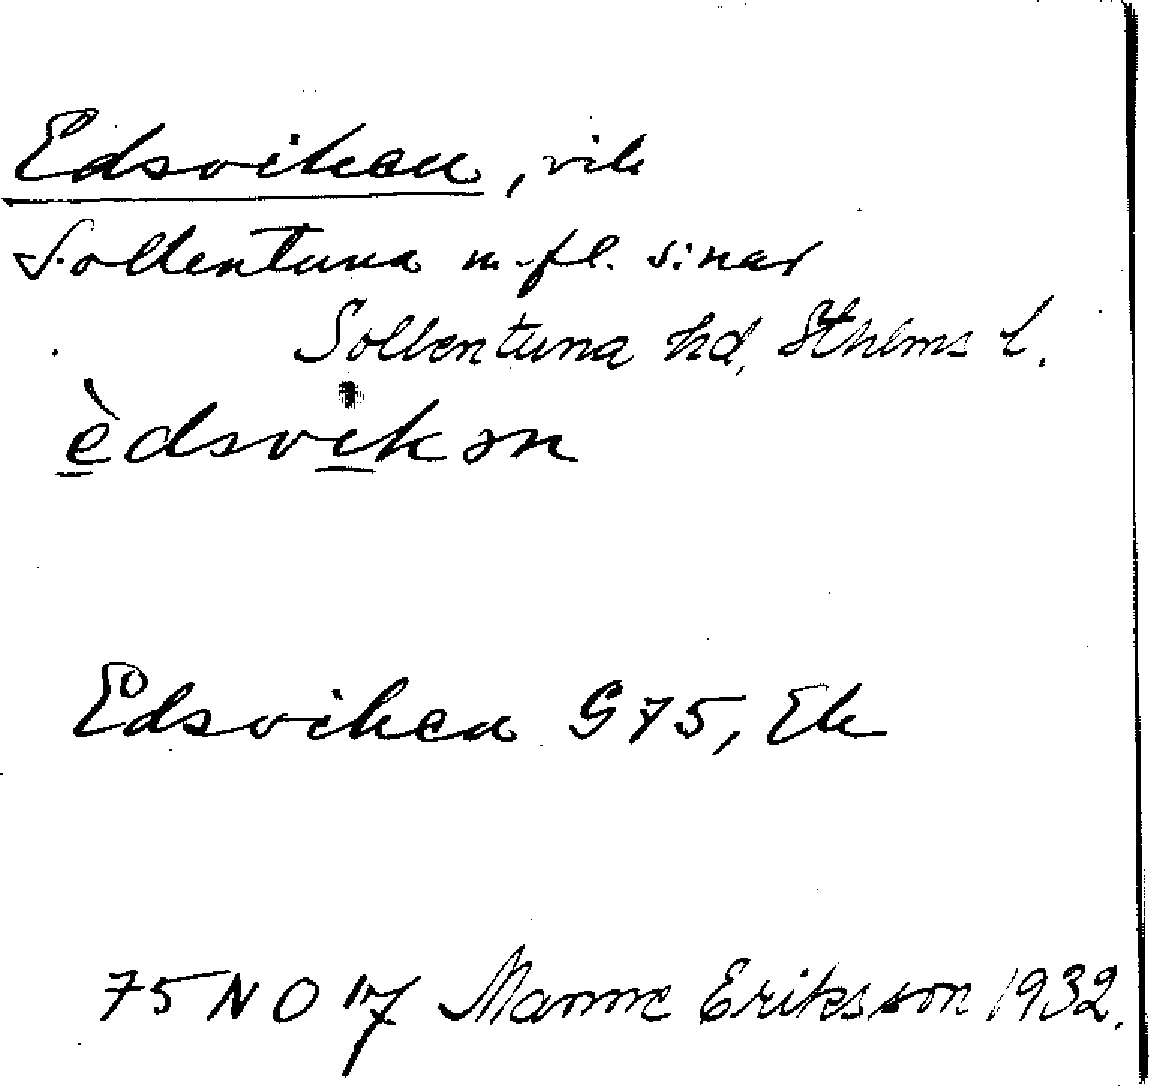 Edsviken, vik
Sollentuna m.fl. s:nar
Sollentuna hd, Sthlms l.
èdsvikən
Edsviken G75, Ek
75 NO Manne Eriksson 1932.